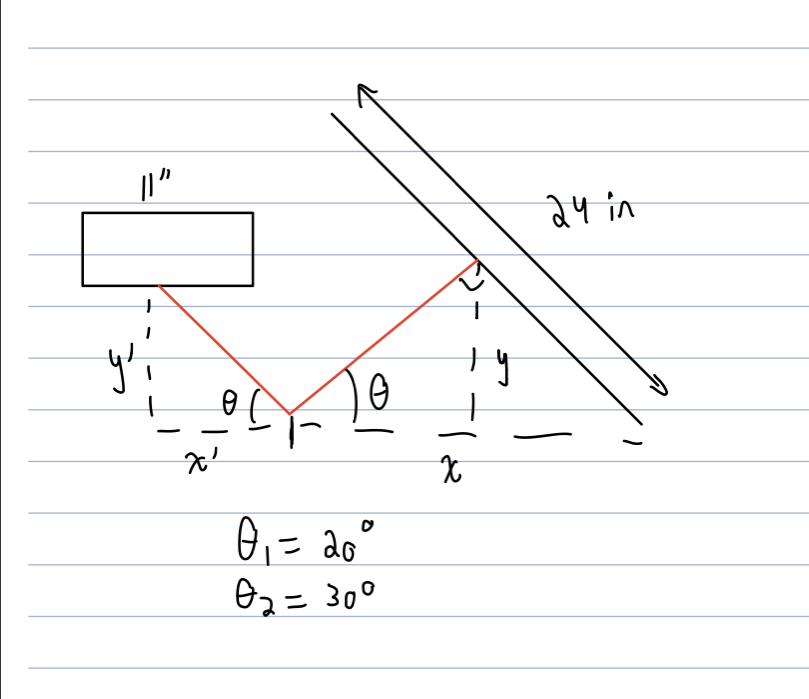 11"
24 in
y'
θ
θ
y
x'
x
θ₁ = 20°
θ₂ = 30°